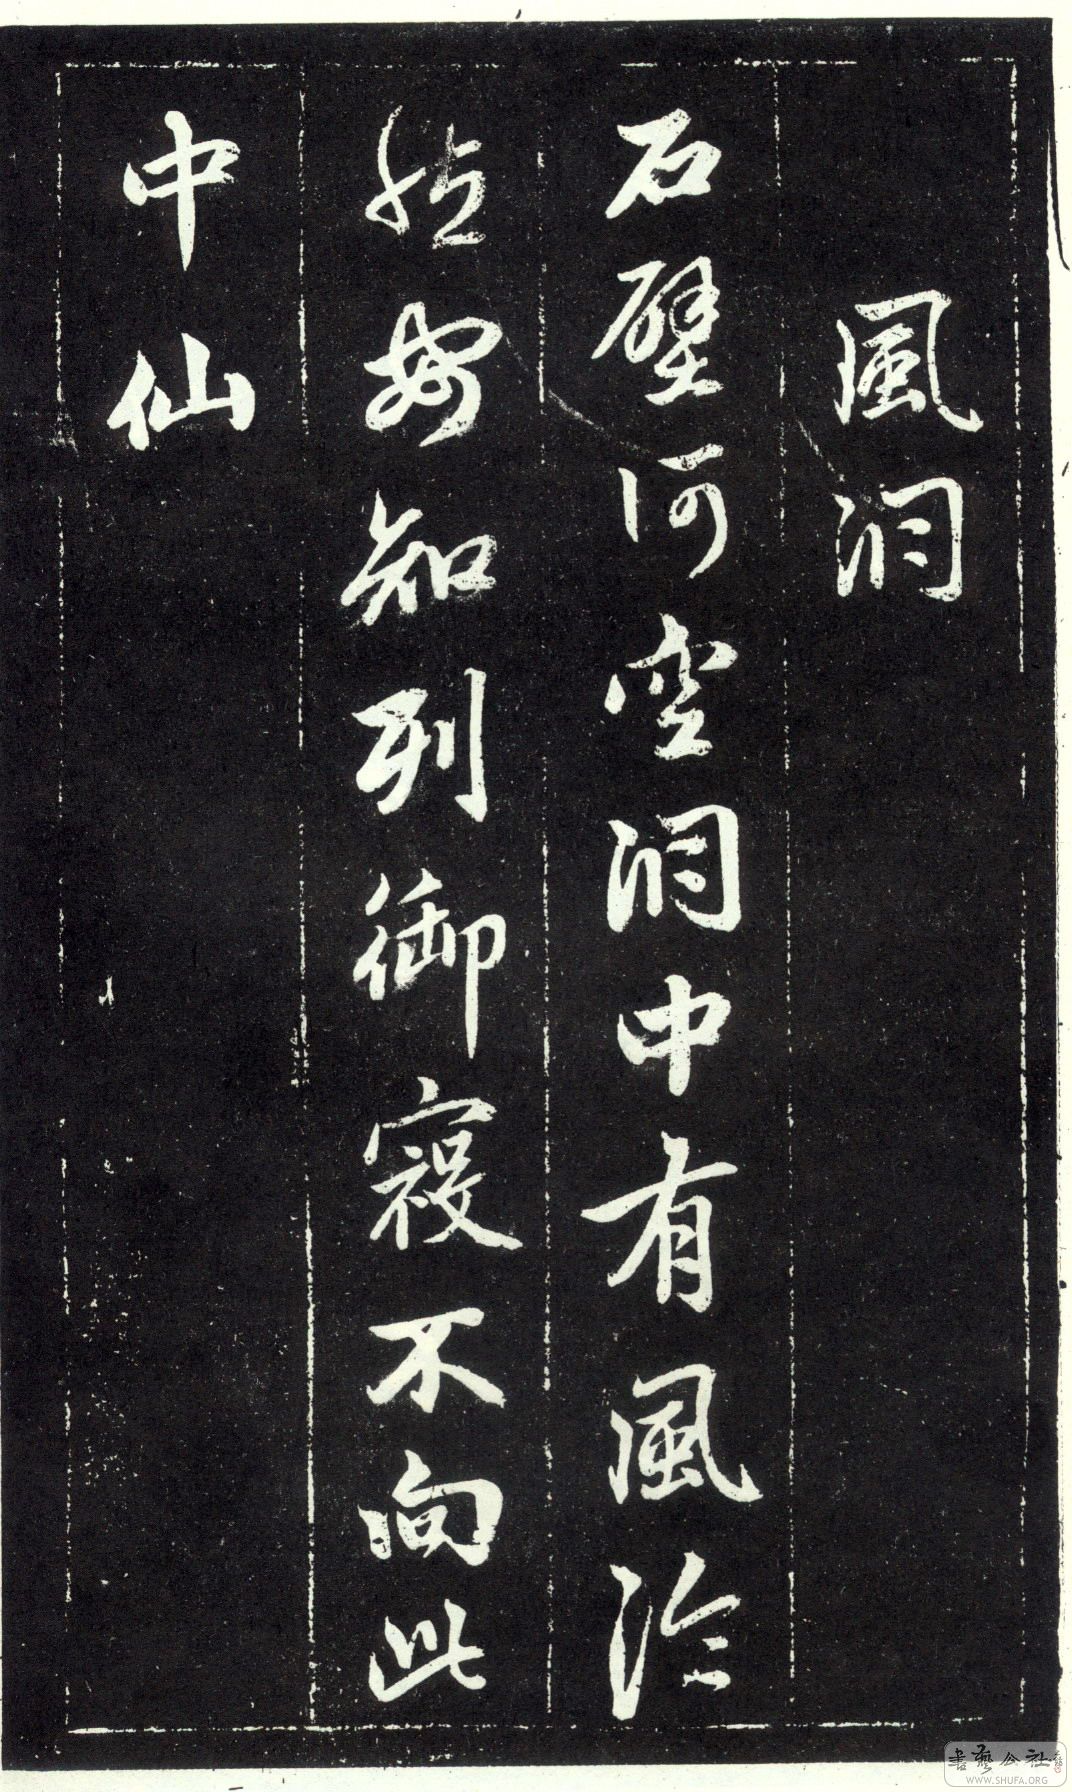 風洞
石壁何空洞中有風泠
然安知列御寇不向此
中仙
書藝公社
WWW.SHUFA.ORG